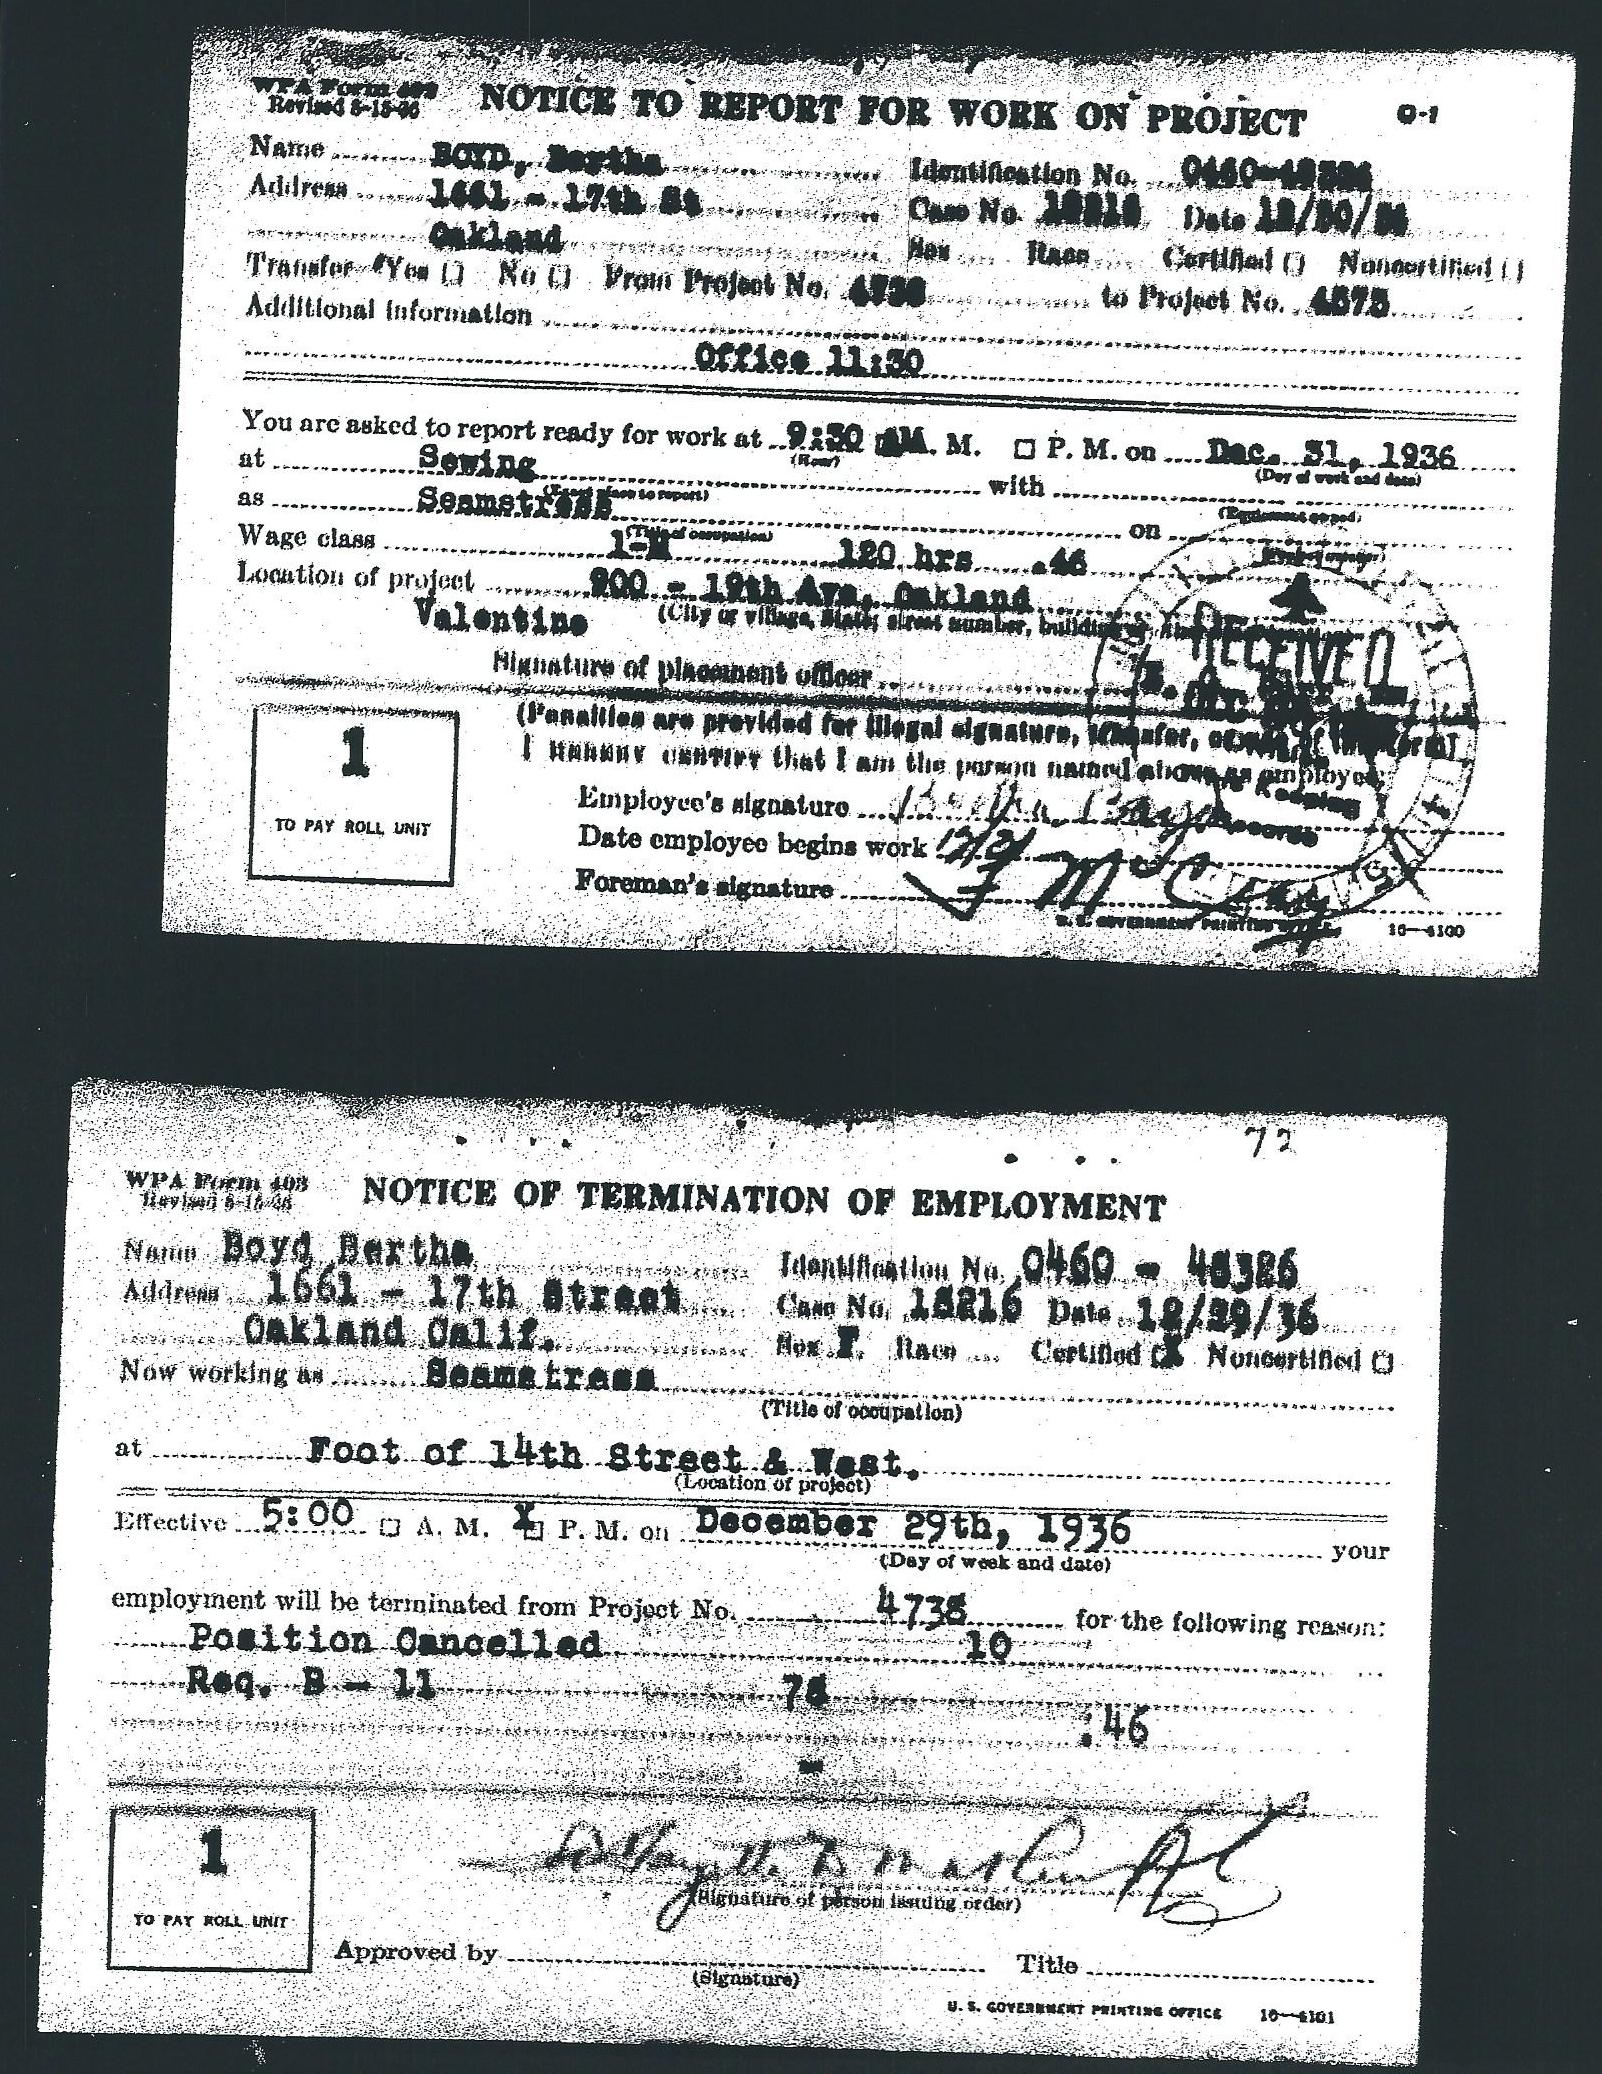 WPA Form 402 NOTICE TO REPORT FOR WORK ON PROJECT O-1
Revised 8-15-36
Name BOYD, Bertha Identification No. 0460-48326
Address 1661 - 17th St Case No. Date 12/30/36
Oakland Sex Race Certified Noncertified
Transfer Yes No From Project No. 4738 to Project No. 4575
Additional information
Office 11:30
You are asked to report ready for work at 9:30 A. M. P. M. on Dec. 31, 1936
(Hour) (Day of week and date)
at Sewing with
(Exact place to report) (Equipment
as Seamstress on
(Title of occupation)
Wage class 120 hrs .46
Location of project 900 - 19th Ave, Oakland
Valentine (City or village, State; street number, building
Signature of placement officer
RECEIVED
(Penalties are provided for illegal signature, transfer, or use of this form)
I HEREBY CERTIFY that I am the person named above as employee.
Employee's signature Bertha Boyd
Keeping
Records
Date employee begins work 12/31
Foreman's signature
1
TO PAY ROLL UNIT
U. S. GOVERNMENT PRINTING OFFICE 16—4100
72
WPA Form 403 NOTICE OF TERMINATION OF EMPLOYMENT
Revised 8-15-36
Name Boyd Bertha Identification No. 0460 - 48326
Address 1661 - 17th Street Case No. 18216 Date 12/29/36
Oakland Calif. Sex F. Race Certified X Noncertified
Now working as Seamstress
(Title of occupation)
at Foot of 14th Street & West.
(Location of project)
Effective 5:00 A. M. X P. M. on December 29th, 1936 your
(Day of week and date)
employment will be terminated from Project No. 4738 for the following reason:
Position Cancelled 10
Req. B - 11 78
:46
-
(Signature of person issuing order)
1
TO PAY ROLL UNIT
Approved by Title
(Signature)
U. S. GOVERNMENT PRINTING OFFICE 16—4101